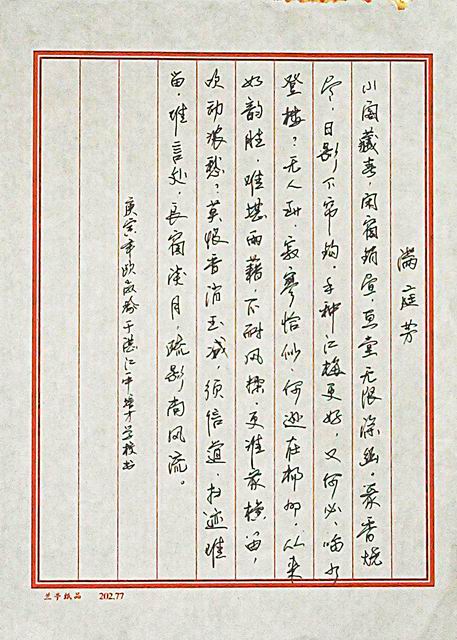 满庭芳
小阁藏春，闲窗销昼，画堂无限深幽。篆香烧
尽，日影下帘钩。手种江梅更好，又何必、临水
登楼？无人到，寂寥恰似、何逊在杨州。从来
如韵胜，难堪雨藉，不耐风揉。更谁家横笛，
吹动浓愁？莫恨香消玉减，须信道、扫迹难
留。难言处，良窗淡月，疏影尚风流。
庚寅年欧于湛江市英才学校书
兰亭纸品 202.77